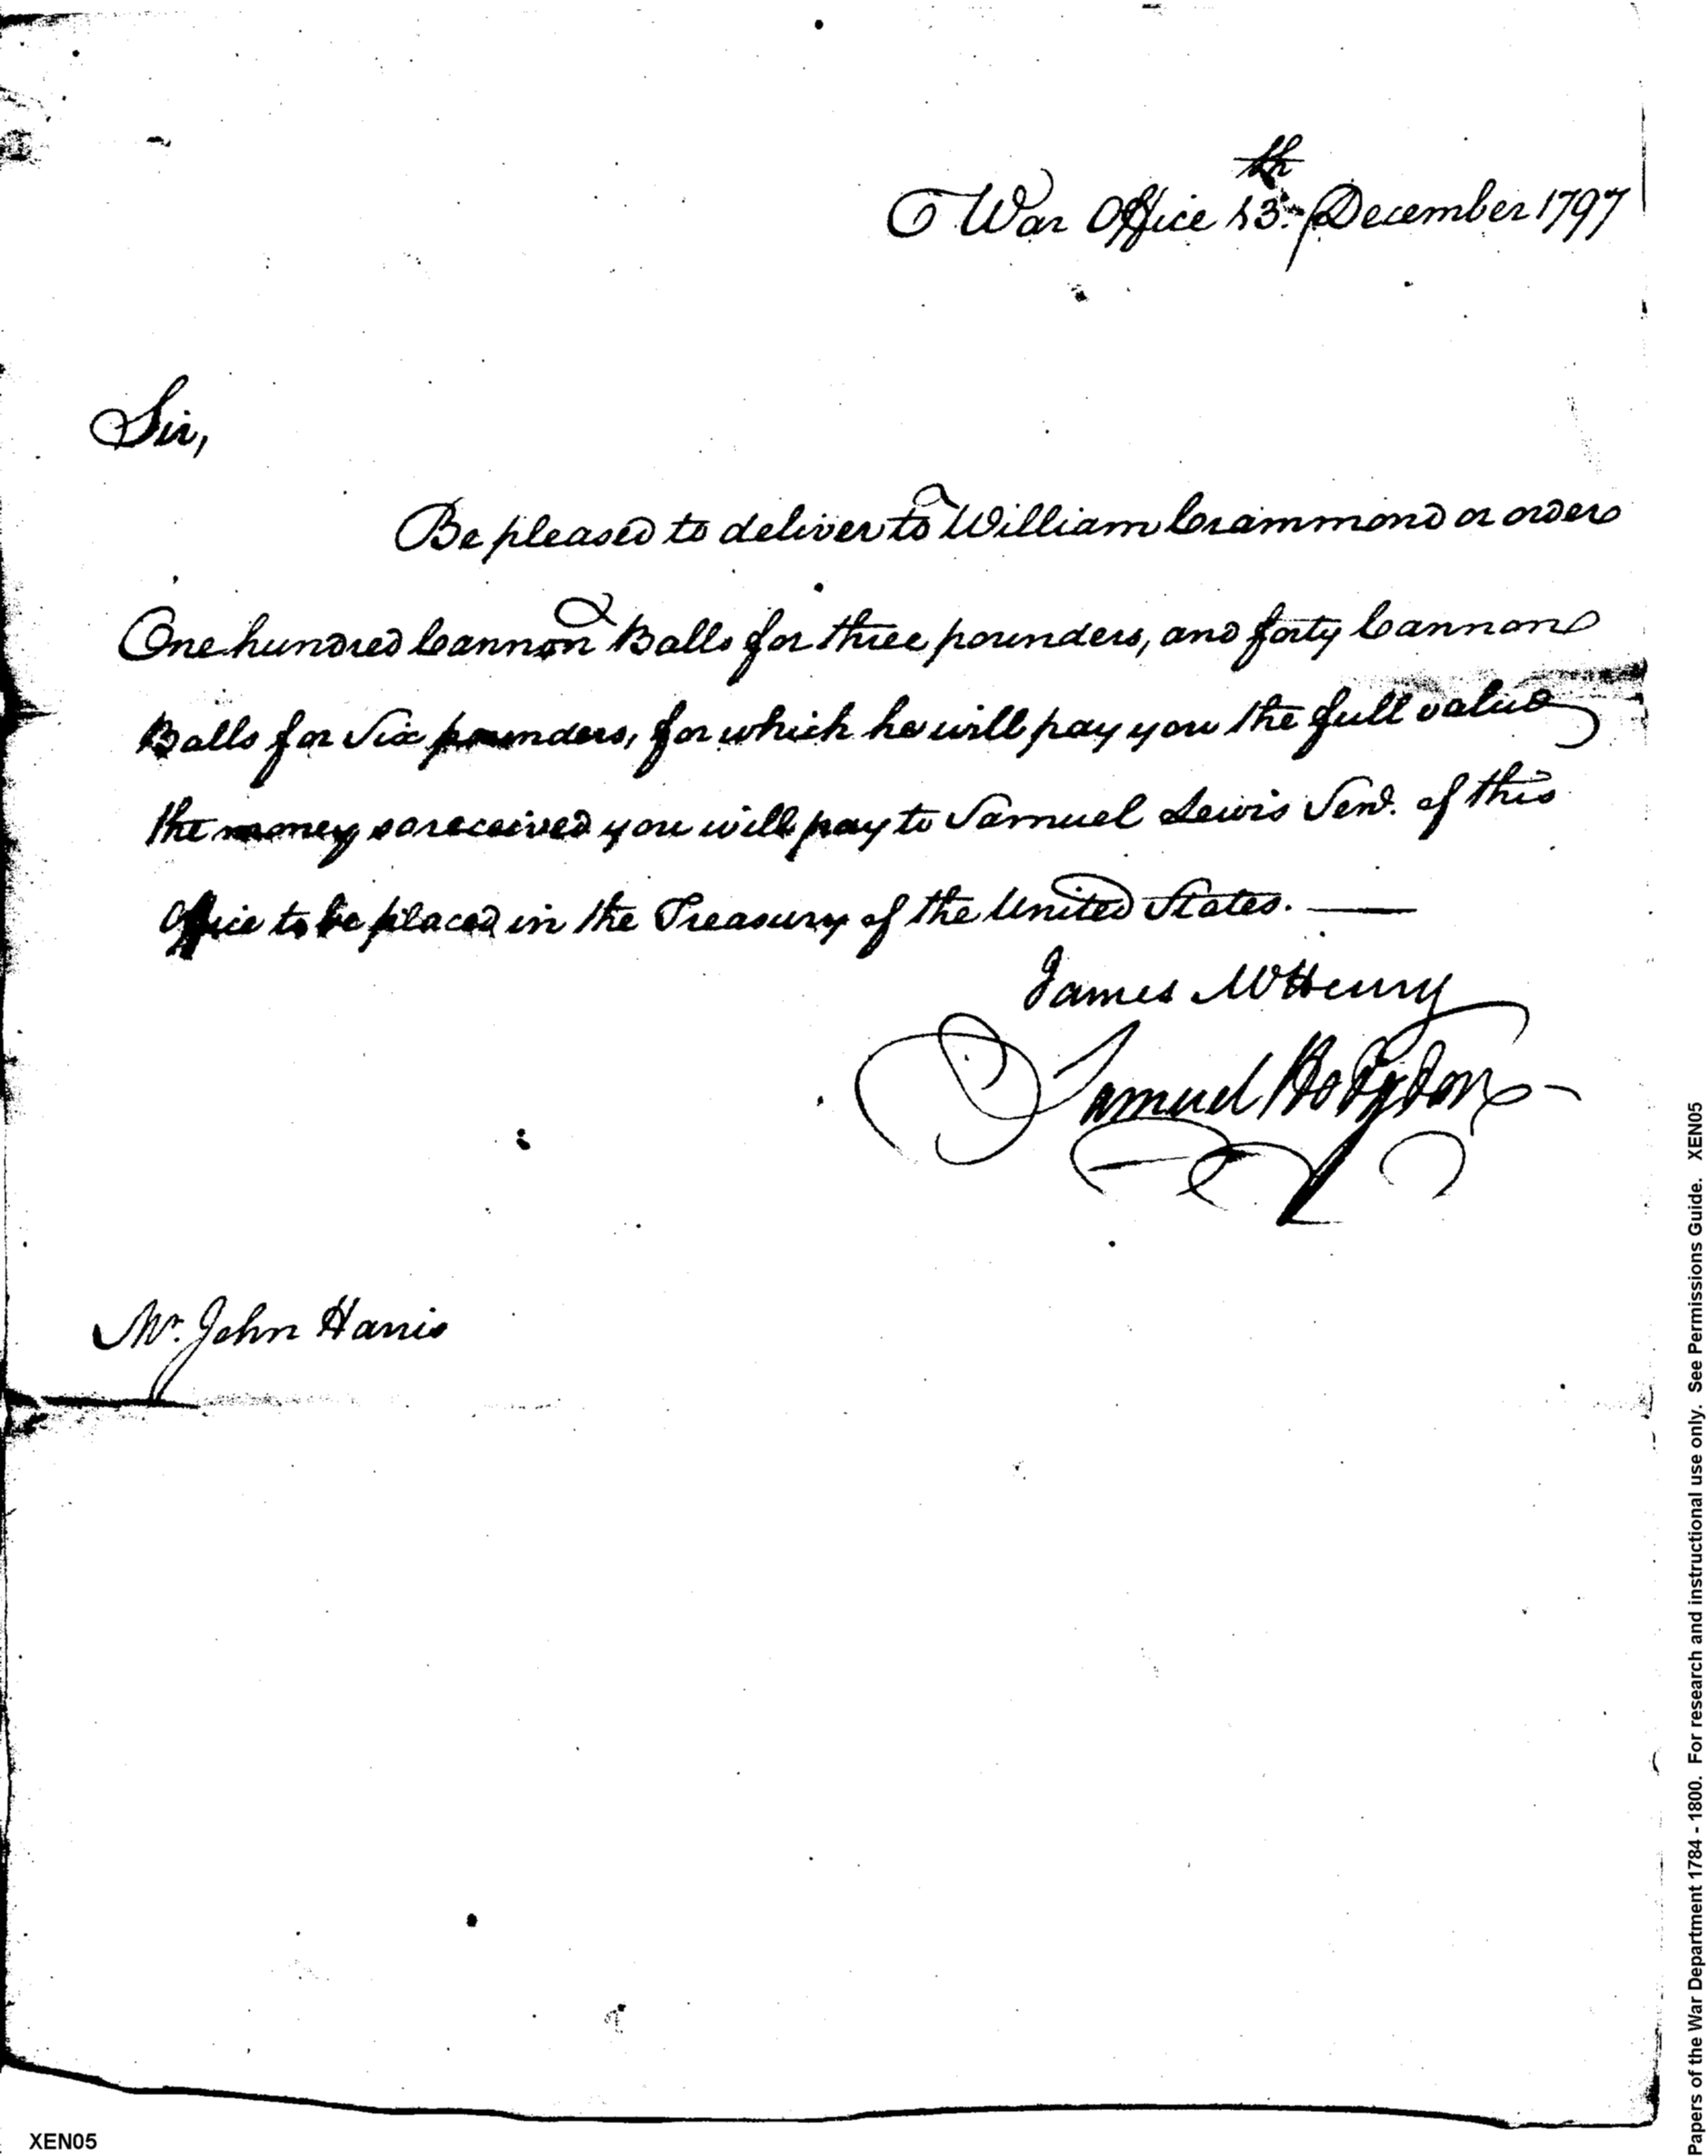 War Office 13th December 1797
Sir,
Be pleased to deliver to William Crammond or order
One hundred Cannon Balls for three pounders, and forty Cannon
Balls for Six pounders, for which he will pay you the full value
the money so received you will pay to Samuel Lewis Senr. of this
Office to be placed in the Treasury of the United States. —
James McHenry
Samuel Hodgdon
Mr. John Harris
XEN05
Papers of the War Department 1784 - 1800. For research and instructional use only. See Permissions Guide. XEN05